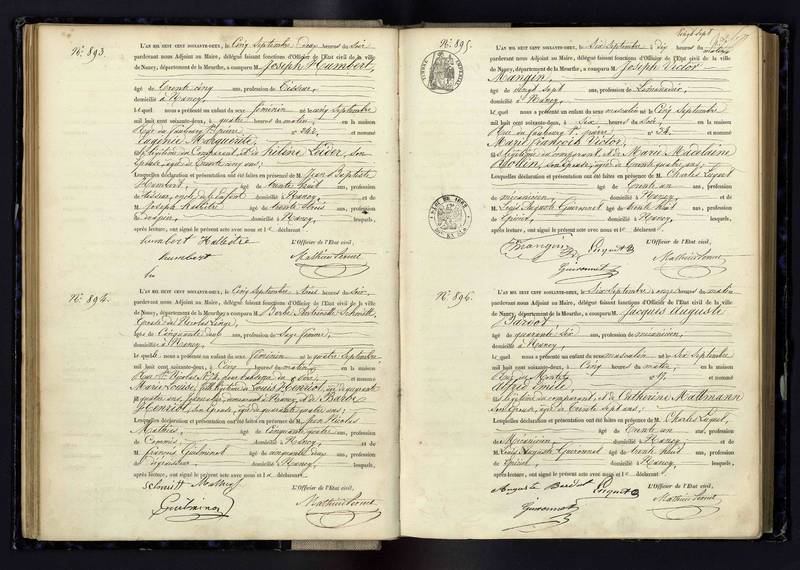 N.º 893.
L'AN MIL HUIT CENT SOIXANTE-DEUX, le Cinq Septembre deux heures du Soir
pardevant nous Adjoint au Maire, délégué faisant fonctions d'Officier de l'Etat civil de la ville
de Nancy, département de la Meurthe, a comparu M. Joseph Humbert,
âgé de Trente cinq ans, profession de Tisseur,
domicilié à Nancy,
Lequel nous a présenté un enfant du sexe féminin né le cinq Septembre
mil huit cent soixante-deux, à quatre heures du matin, en la maison
Rue du faubourg St pierre n° 242, et nommé
Eugénie Marguerite,
fille légitime du Comparant, et de hélène Leider, son
Epouse, âgée de Trente cinq ans;
Lesquelles déclaration et présentation ont été faites en présence de M. Jean Baptiste
Humbert, âgé de trente huit ans, profession
de tisseur, oncle de l'enfant domicilié à Nancy, et de
M. Joseph âgé de trente trois ans, profession
de domicilié à Nancy, lesquels,
après lecture, ont signé le présent acte avec nous et le déclarant
humbert L'Officier de l'Etat civil,
humbert Mathieu
N.º 894.
L'AN MIL HUIT CENT SOIXANTE-DEUX, le Cinq Septembre heures du Soir
pardevant nous Adjoint au Maire, délégué faisant fonctions d'Officier de l'Etat civil de la ville
de Nancy, département de la Meurthe, a comparu M. Barbe Schmitt
Epouse de Nicolas
âgée de Cinquante deux ans, profession de Sage femme,
domiciliée à Nancy,
Laquelle nous a présenté un enfant du sexe féminin né le quatre Septembre
mil huit cent soixante-deux, à Cinq heures du matin, en la maison
Rue St Nicolas et nommé
Marie Louise, fille légitime de Louis Henriot, âgé de quarante
quatre ans, domicilié à Nancy, et de Barbe
Henriot, son Epouse, âgée de quarante quatre ans;
Lesquelles déclaration et présentation ont été faites en présence de M. Jean Nicolas
Mathis, âgé de Cinquante quatre ans, profession
de Commis, domicilié à Nancy, et de
M. françois Guilminot âgé de cinquante deux ans, profession
de domicilié à Nancy, lesquels,
après lecture, ont signé le présent acte avec nous et la déclarante
Schmitt Mathis L'Officier de l'Etat civil,
Guilminot Mathieu
N.º 895.
Vingt Sept
L'AN MIL HUIT CENT SOIXANTE-DEUX, le Six Septembre à dix heures du matin
pardevant nous Adjoint au Maire, délégué faisant fonctions d'Officier de l'Etat civil de la ville
de Nancy, département de la Meurthe, a comparu M. Joseph Victor
Mangin,
âgé de vingt sept ans, profession de Limonadier,
domicilié à Nancy,
Lequel nous a présenté un enfant du sexe masculin né le Cinq Septembre
mil huit cent soixante-deux, à Six heures du Soir, en la maison
Rue du faubourg St pierre n° 34, et nommé
Marie François Victor,
fils légitime du comparant et de Marie Madelaine
son Epouse, âgée de Trente quatre ans,
Lesquelles déclaration et présentation ont été faites en présence de M. Charles
âgé de Trente un ans, profession
de mécanicien, domicilié à Nancy, et de
M. Louis Auguste Guironnet âgé de trente huit ans, profession
de Epicier, domicilié à Nancy, lesquels,
après lecture, ont signé le présent acte avec nous et le déclarant.
L'Officier de l'Etat civil,
Mangin
Guironnet Mathieu
N.º 896.
L'AN MIL HUIT CENT SOIXANTE-DEUX, le Six Septembre à onze heures du matin
pardevant nous Adjoint au Maire, délégué faisant fonctions d'Officier de l'Etat civil de la ville
de Nancy, département de la Meurthe, a comparu M. Jacques Auguste
Bardot,
âgé de quarante six ans, profession de mécanicien,
domicilié à Nancy,
Lequel nous a présenté un enfant du sexe masculin né le Six Septembre
mil huit cent soixante-deux, à Cinq heures du matin, en la maison
et nommé
Alfred Emile,
fils légitime du comparant, et de Catherine Maltmann
son Epouse, âgée de Trente sept ans;
Lesquelles déclaration et présentation ont été faites en présence de M. Charles
âgé de Trente un ans, profession
de Mécanicien, domicilié à Nancy, et de
M. Louis Auguste Guironnet âgé de trente huit ans, profession
de Epicier, domicilié à Nancy, lesquels,
après lecture, ont signé le présent acte avec nous et le déclarant.
L'Officier de l'Etat civil,
Auguste Bardot
Guironnet Mathieu